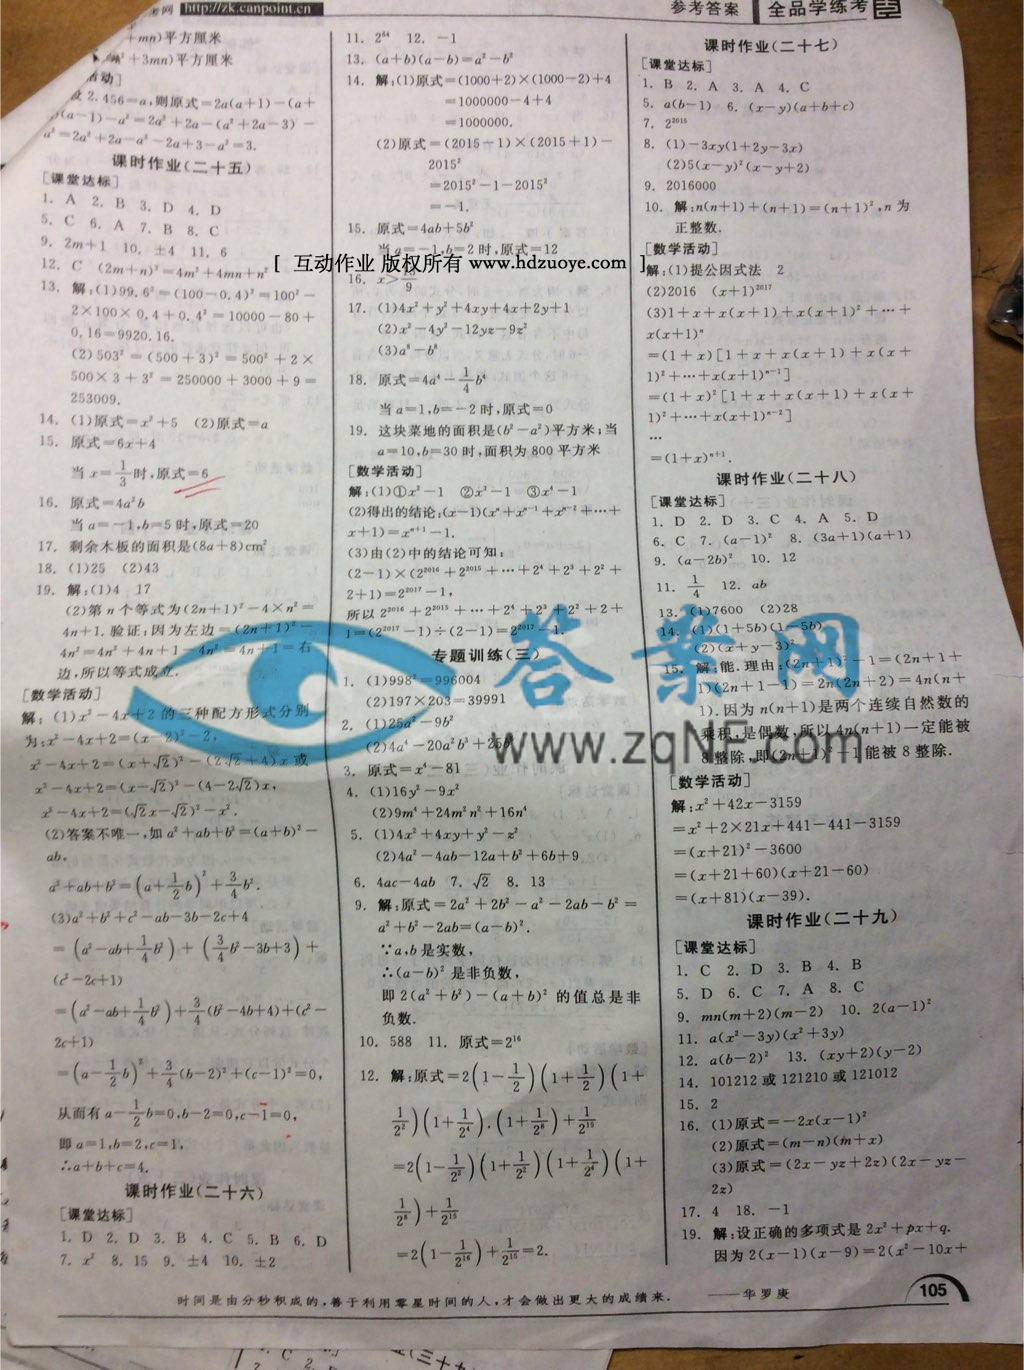 考网 http://zk.canpoint.cn
参考答案 全品学练考
+mn)平方厘米
+3mn)平方厘米
活动]
2.456=a,则原式=2a(a+1)-(a+
)(a-1)-a²=2a²+2a-(a²+2a-3)-
a²=2a²+2a-a²-2a+3-a²=3.
课时作业(二十五)
[课堂达标]
1. A 2. B 3. D 4. D
5. C 6. A 7. B 8. C
9. 2m+1 10. ±4 11. 6
12. C (2m+n)²=4m²+4mn+n²
13. 解:(1)99.6²=(100-0.4)²=100²-
2×100×0.4+0.4²=10000-80+
0.16=9920.16.
(2)503²=(500+3)²=500²+2×
500×3+3²=250000+3000+9=
253009.
14. (1)原式=x²+5 (2)原式=a
15. 原式=6x+4
当x=1/3时,原式=6
16. 原式=4a²b
当a=-1,b=5时,原式=20
17. 剩余木板的面积是(8a+8)cm²
18. (1)25 (2)43
19. 解:(1)4 17
(2)第n个等式为(2n+1)²-4×n²=
4n+1.验证:因为左边=(2n+1)²-
4n²=4n²+4n+1-4n²=4n+1=右
边,所以等式成立.
[数学活动]
解:(1)x²-4x+2的三种配方形式分别
为:x²-4x+2=(x-2)²-2,
x²-4x+2=(x+√2)²-(2√2+4)x或
x²-4x+2=(x-√2)²-(4-2√2)x,
x²-4x+2=(√2x-√2)²-x².
(2)答案不唯一,如a²+ab+b²=(a+b)²-
ab,
a²+ab+b²=(a+1/2b)²+3/4b².
(3)a²+b²+c²-ab-3b-2c+4
=(a²-ab+1/4b²)+(3/4b²-3b+3)+
(c²-2c+1)
=(a²-ab+1/4b²)+3/4(b²-4b+4)+(c²-
2c+1)
=(a-1/2b)²+3/4(b-2)²+(c-1)²=0,
从而有a-1/2b=0,b-2=0,c-1=0,
即a=1,b=2,c=1,
∴a+b+c=4.
课时作业(二十六)
[课堂达标]
1. D 2. D 3. B 4. C 5. B 6. D
7. x² 8. 15 9. ±4 10. ±2
11. 2⁶⁴ 12. -1
13. (a+b)(a-b)=a²-b²
14. 解:(1)原式=(1000+2)×(1000-2)+4
=1000000-4+4
=1000000.
(2)原式=(2015-1)×(2015+1)-
2015²
=2015²-1-2015²
=-1.
15. 原式=4ab+5b²
当a=-1,b=2时,原式=12
[ 互动作业 版权所有 www.hdzuoye.com ]
16. x> /9
17. (1)4x²+y²+4xy+4x+2y+1
(2)x²-4y²-12yz-9z²
(3)a⁸-b⁸
18. 原式=4a⁴-1/4b⁴
当a=1,b=-2时,原式=0
19. 这块菜地的面积是(b²-a²)平方米;当
a=10,b=30时,面积为800平方米
[数学活动]
解:(1)①x²-1 ②x³-1 ③x⁴-1
(2)得出的结论:(x-1)(xⁿ+xⁿ⁻¹+xⁿ⁻²+…+
x+1)=xⁿ⁺¹-1.
(3)由(2)中的结论可知:
(2-1)×(2²⁰¹⁶+2²⁰¹⁵+…+2⁴+2³+2²+
2+1)=2²⁰¹⁷-1,
所以2²⁰¹⁶+2²⁰¹⁵+…+2⁴+2³+2²+2+
1=(2²⁰¹⁷-1)÷(2-1)=2²⁰¹⁷-1.
专题训练(三)
1. (1)998²=996004
(2)197×203=39991
2. (1)25a²-9b²
(2)4a⁴-20a²b³+25b
3. 原式=x⁴-81
4. (1)16y²-9x²
(2)9m⁴+24m²n²+16n⁴
5. (1)4x²+4xy+y²-z²
(2)4a²-4ab-12a+b²+6b+9
6. 4ac-4ab 7. √2 8. 13
9. 解:原式=2a²+2b²-a²-2ab-b²=
a²+b²-2ab=(a-b)².
∵a,b是实数,
∴(a-b)²是非负数,
即2(a²+b²)-(a+b)²的值总是非
负数.
10. 588 11. 原式=2¹⁶
12. 解:原式=2(1-1/2)(1+1/2)(1+
1/2²)(1+1/2⁴).(1+1/2⁸)+1/2¹⁵
=2(1-1/2²)(1+1/2²)(1+1/2⁴)(1+
1/2⁸)+1/2¹⁵
=2(1-1/2¹⁶)+1/2¹⁵=2.
课时作业(二十七)
[课堂达标]
1. B 2. A 3. A 4. C
5. a(b-1) 6. (x-y)(a+b+c)
7. 2²⁰¹⁵
8. (1)-3xy(1+2y-3x)
(2)5(x-y)²(x-y+2)
9. 2016000
10. 解:n(n+1)+(n+1)=(n+1)²,n为
正整数.
[数学活动]
解:(1)提公因式法 2
(2)2016 (x+1)²⁰¹⁷
(3)1+x+x(x+1)+x(x+1)²+…+
x(x+1)ⁿ
=(1+x)[1+x+x(x+1)+x(x+
1)²+…+x(x+1)ⁿ⁻¹]
=(1+x)²[1+x+x(x+1)+x(x+
1)²+…+x(x+1)ⁿ⁻²]
…
=(1+x)ⁿ⁺¹.
课时作业(二十八)
[课堂达标]
1. D 2. D 3. C 4. A 5. D
6. C 7. (a-1)² 8. (3a+1)(a+1)
9. (a-2b)² 10. 12
11. 1/4 12. ab
13. (1)7600 (2)28
14. (1)(1+5b)(1-5b)
(2)(x+y-3)²
15. 解:能.理由:(2n+1)²-1=(2n+1+
1)(2n+1-1)=2n(2n+2)=4n(n+
1).因为n(n+1)是两个连续自然数的
乘积,是偶数,所以4n(n+1)一定能被
8整除,即(2n+1)²-1能被8整除.
[数学活动]
解:x²+42x-3159
=x²+2×21x+441-441-3159
=(x+21)²-3600
=(x+21+60)(x+21-60)
=(x+81)(x-39).
课时作业(二十九)
[课堂达标]
1. C 2. D 3. B 4. B
5. D 6. C 7. A 8. C
9. mn(m+2)(m-2) 10. 2(a-1)²
11. a(x²-3y)(x²+3y)
12. a(b-2)² 13. (xy+2)(y-2)
14. 101212或121210或121012
15. 2
16. (1)原式=-2x(x-1)²
(2)原式=(m-n)(m+x)
(3)原式=(2x-yz+2z)(2x-yz-
2z)
17. 4 18. -1
19. 解:设正确的多项式是2x²+px+q.
因为2(x-1)(x-9)=2(x²-10x+
答案网
www.zqNF.com
时间是由分秒积成的,善于利用零星时间的人,才会做出更大的成绩来. ——华罗庚
105